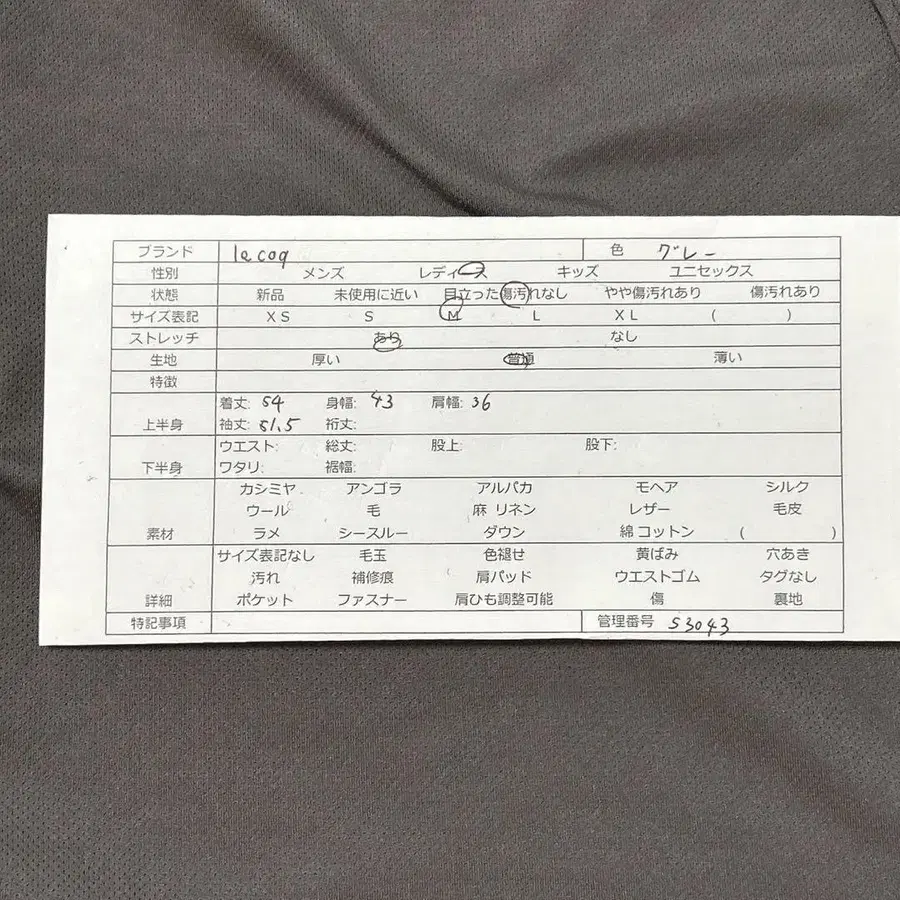 ブランド le coq 色 グレー
性別 メンズ レディース キッズ ユニセックス
状態 新品 未使用に近い 目立った傷汚れなし やや傷汚れあり 傷汚れあり
サイズ表記 XS S M L XL ( )
ストレッチ あり なし
生地 厚い 普通 薄い
特徴
着丈: 54 身幅: 43 肩幅: 36
上半身 袖丈: 51.5 裄丈:
ウエスト: 総丈: 股上: 股下:
下半身 ワタリ: 裾幅:
カシミヤ アンゴラ アルパカ モヘア シルク
ウール 毛 麻 リネン レザー 毛皮
素材 ラメ シースルー ダウン 綿 コットン ( )
サイズ表記なし 毛玉 色褪せ 黄ばみ 穴あき
汚れ 補修痕 肩パッド ウエストゴム タグなし
詳細 ポケット ファスナー 肩ひも調整可能 傷 裏地
特記事項 管理番号 S3043